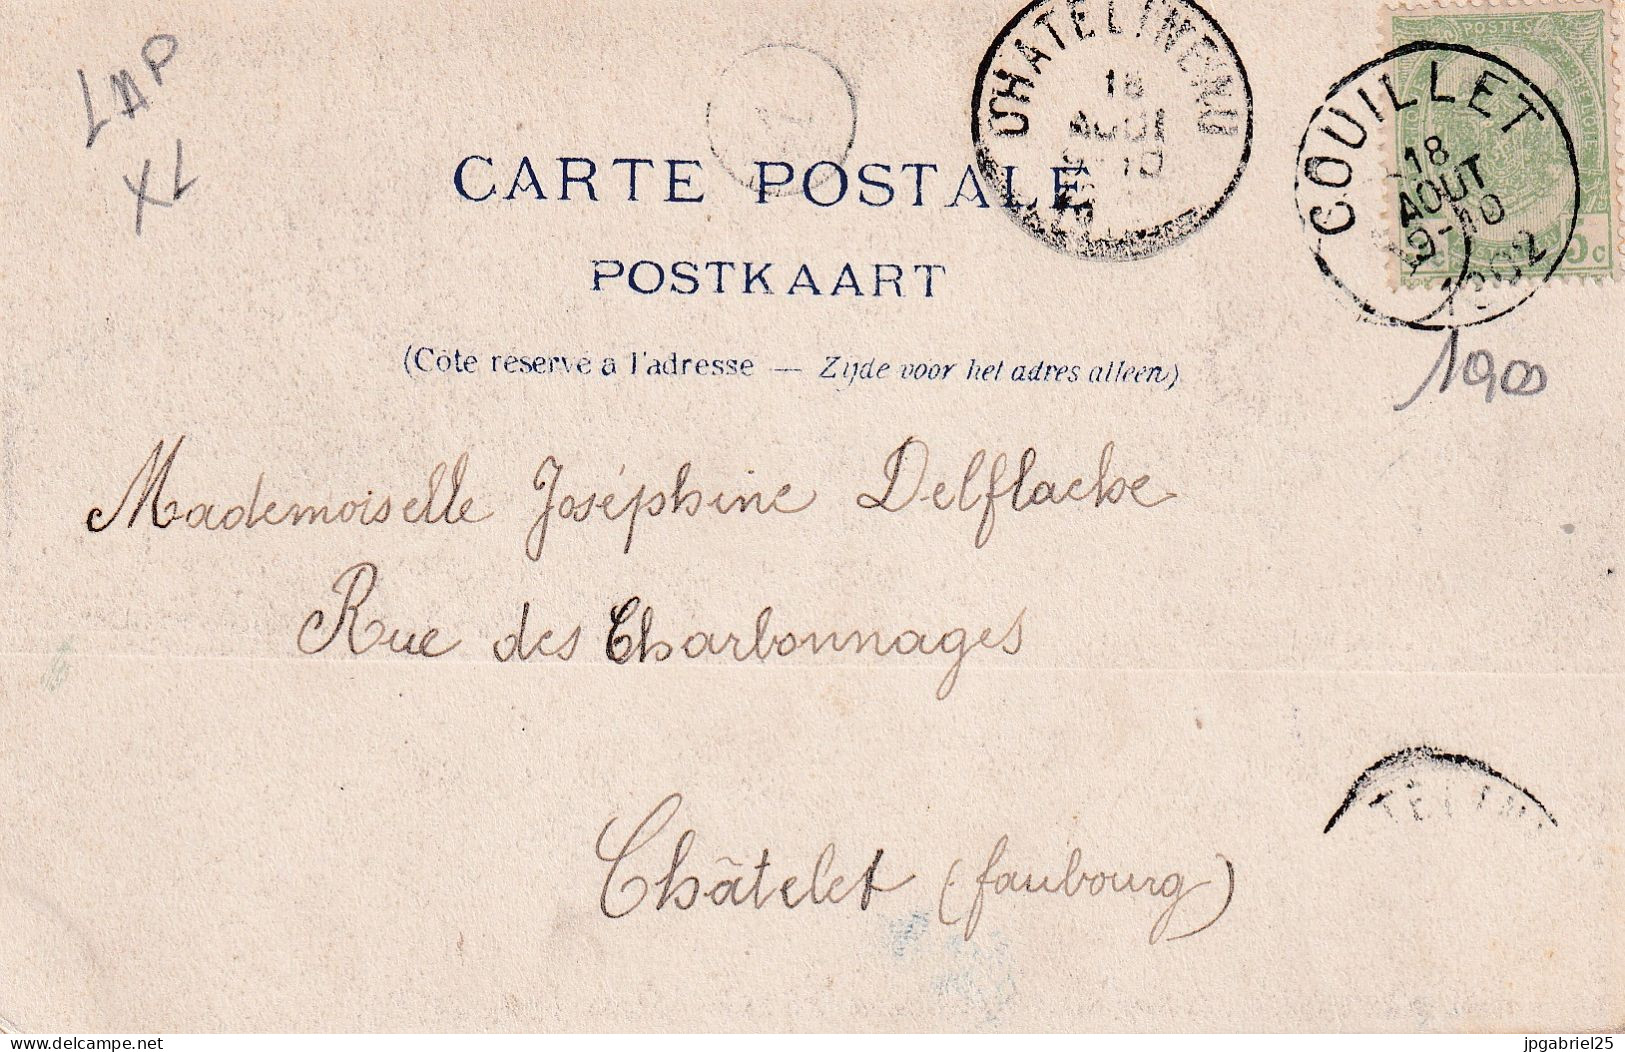 LAP
XL
CHATELINEAU
18
AOUT
COUILLET
18
AOUT
9-10
1902
POSTES
5c
1900
CARTE POSTALE
POSTKAART
(Côté réservé à l'adresse — Zijde voor het adres alleen)
Mademoiselle Joséphine Delflache
Rue des Charbonnages
Châtelet (faubourg)
TELIN
delcampe.net
jpgabriel25